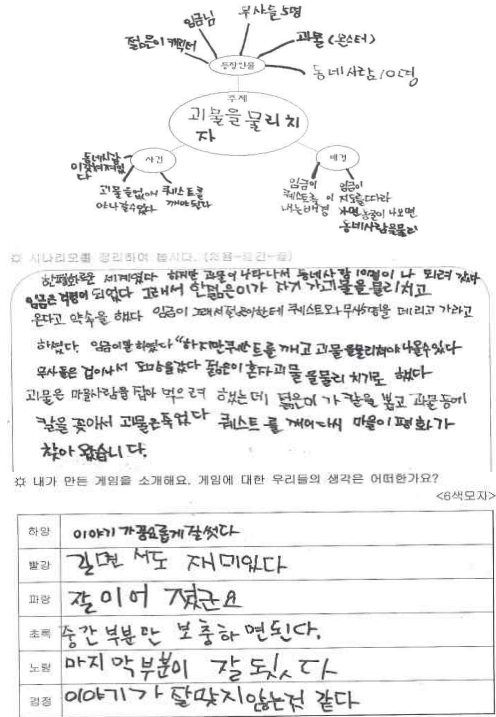 임금님
무사들 5명
젊은이 캐릭터
괴물 (몬스터)
등장인물
동네사람 10명
주제
괴물을 물리치
자
사건
배경
동네사람
괴물을 없애서 퀘스트를
깨야 된다
임금이
퀘스트를
내는 배경
임금이
지도를 따라
가면 동굴이 나오면
동네사람을 물리
☼ 시나리오를 정리하여 봅시다. (처음-중간-끝)
한 평화로운 세계였다 하지만 괴물이 나타나서 동네사람 10명이
임금은 걱정이 되었다 그래서 한 젊은이가 자기가 괴물을 물리치고
온다고 약속을 했다 임금이 그래서 젊은이한테 퀘스트와 무사5명을 데리고 가라고
하셨다. 임금이 말하였다 "하지만 퀘스트를 깨고 괴물을 물리쳐야 나올수 있다
무사들은 겁이나서 도망을 갔다 젊은이 혼자 괴물을 물리치기로 했다
괴물은 마을사람을 잡아 먹으려 하였는데 젊은이가 칼을 뽑고 괴물등에
칼을 꽂아서 괴물은 죽었다 퀘스트를 깨어 다시 마을이 평화가
찾아 왔습니다.
☼ 내가 만든 게임을 소개해요. 게임에 대한 우리들의 생각은 어떠한가요?
<6색모자>
하양 이야기가 흥요롭게 잘썼다
빨강 길면서도 재미있다
파랑 잘 이어 졌군요
초록 중간 부분만 보충하면된다.
노랑 마지막 부분이 잘 됬있다
검정 이야기가 잘맞지 않는것 같다